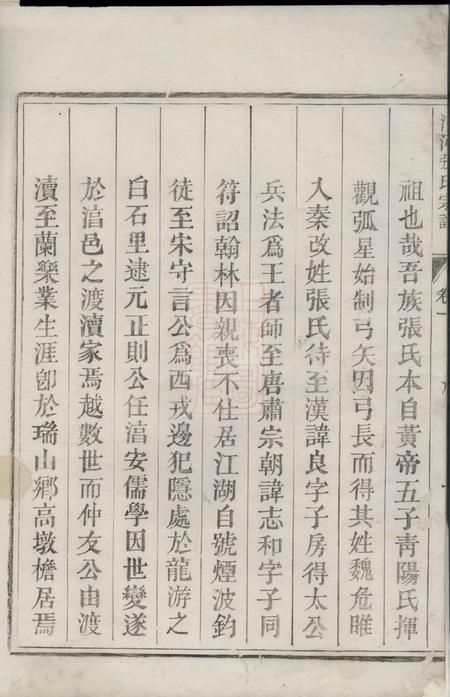 清河張氏宗譜
卷一
祖也哉吾族張氏本自黃帝五子青陽氏揮
觀弧星始制弓矢因弓長而得其姓魏危睢
入秦改姓張氏待至漢諱良字子房得太公
兵法爲王者師至唐肅宗朝諱志和字子同
符詔翰林因親喪不仕居江湖自號煙波釣
徒至宋守言公爲西戎邊犯隱處於龍游之
白石里逮元正則公任湇安儒學因世變遂
於湇邑之渡瀆家焉越數世而仲友公由渡
瀆至蘭樂業生涯卽於瑞山鄉高墩檐居焉